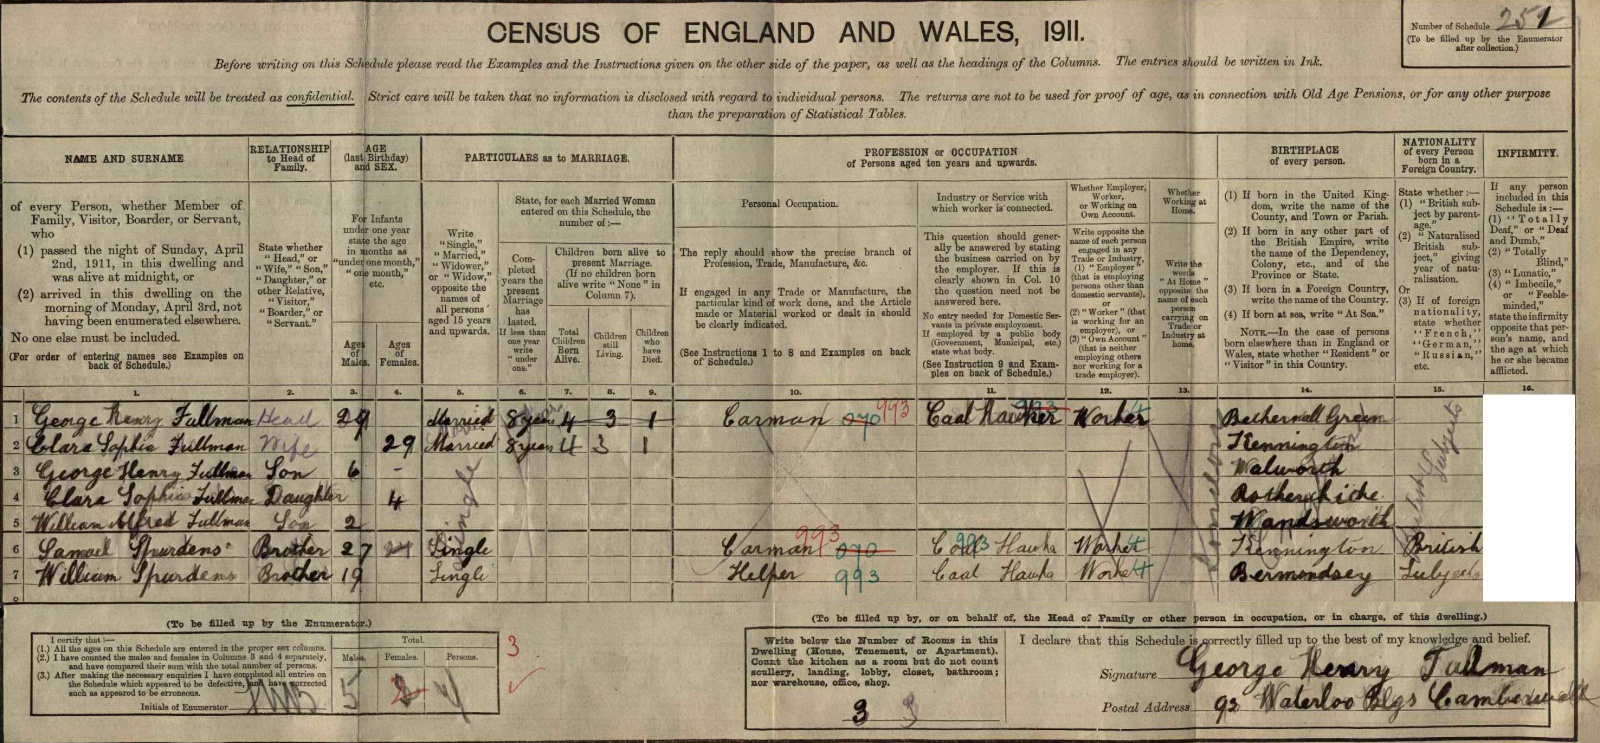 CENSUS OF ENGLAND AND WALES, 1911.
Number of Schedule 251
(To be filled up by the Enumerator
after collection.)
Before writing on this Schedule please read the Examples and the Instructions given on the other side of the paper, as well as the headings of the Columns. The entries should be written in Ink.
The contents of the Schedule will be treated as confidential. Strict care will be taken that no information is disclosed with regard to individual persons. The returns are not to be used for proof of age, as in connection with Old Age Pensions, or for any other purpose
than the preparation of Statistical Tables.
NAME AND SURNAME
RELATIONSHIP
to Head of
Family.
AGE
(last Birthday)
and SEX.
PARTICULARS as to MARRIAGE.
PROFESSION or OCCUPATION
of Persons aged ten years and upwards.
BIRTHPLACE
of every person.
NATIONALITY
of every Person
born in a
Foreign Country.
INFIRMITY.
of every Person, whether Member of
Family, Visitor, Boarder, or Servant,
who
(1) passed the night of Sunday, April
2nd, 1911, in this dwelling and
was alive at midnight, or
(2) arrived in this dwelling on the
morning of Monday, April 3rd, not
having been enumerated elsewhere.
No one else must be included.
(For order of entering names see Examples on
back of Schedule.)
State whether
"Head," or
"Wife," "Son,"
"Daughter," or
other Relative,
"Visitor,"
"Boarder," or
"Servant."
For Infants
under one year
state the age
in months as
"under one month,"
"one month,"
etc.
Ages
of
Males.
Ages
of
Females.
Write
"Single,"
"Married,"
"Widower,"
or "Widow,"
opposite the
names of
all persons
aged 15 years
and upwards.
State, for each Married Woman
entered on this Schedule, the
number of:—
Completed
years the
present
Marriage
has
lasted.
If less than
one year
write
"under
one."
Children born alive to
present Marriage.
(If no children born
alive write "None" in
Column 7).
Total
Children
Born
Alive.
Children
still
Living.
Children
who
have
Died.
Personal Occupation.
The reply should show the precise branch of
Profession, Trade, Manufacture, &c.
If engaged in any Trade or Manufacture, the
particular kind of work done, and the Article
made or Material worked or dealt in should
be clearly indicated.
(See Instructions 1 to 8 and Examples on back
of Schedule.)
Industry or Service with
which worker is connected.
This question should generally
be answered by stating
the business carried on by
the employer. If this is
clearly shown in Col. 10
the question need not be
answered here.
No entry needed for Domestic Servants
in private employment.
If employed by a public body
(Government, Municipal, etc.)
state what body.
(See Instruction 9 and Examples
on back of Schedule.)
Whether Employer,
Worker,
or Working on
Own Account.
Write opposite the
name of each person
engaged in any
Trade or Industry,
(1) "Employer"
(that is employing
persons other than
domestic servants),
or
(2) "Worker" (that
is working for an
employer), or
(3) "Own Account"
(that is neither
employing others
nor working for a
trade employer).
Whether
Working at
Home.
Write the
words
"At Home"
opposite the
name of each
person
carrying on
Trade or
Industry at
home.
(1) If born in the United Kingdom,
write the name of the
County, and Town or Parish.
(2) If born in any other part of
the British Empire, write
the name of the Dependency,
Colony, etc., and of the
Province or State.
(3) If born in a Foreign Country,
write the name of the Country.
(4) If born at sea, write "At Sea."
NOTE.—In the case of persons
born elsewhere than in England or
Wales, state whether "Resident" or
"Visitor" in this Country.
State whether:—
(1) "British subject
by parentage."
(2) "Naturalised
British subject,"
giving
year of naturalisation.
Or
(3) If of foreign
nationality,
state whether
"French,"
"German,"
"Russian,"
etc.
If any person
included in this
Schedule is:—
(1) "Totally
Deaf," or "Deaf
and Dumb,"
(2) "Totally
Blind,"
(3) "Lunatic,"
(4) "Imbecile,"
or "Feeble-minded,"
state the infirmity
opposite that person's
name, and
the age at which
he or she became
afflicted.
1. 2. 3. 4. 5. 6. 7. 8. 9. 10. 11. 12. 13. 14. 15. 16.
1 George Henry Fullman Head 29 Married 8 years 4 3 1 Carman 070 993 Coal Hawker 993 Worker Bethernall Green
2 Clara Sophia Fullman Wife 29 Married 8 years 4 3 1 Kennington
3 George Henry Fullman Son 6 - Walworth
4 Clara Sophia Fullman Daughter 4 Rotherhide
5 William Alfred Fullman Son 2 Wandsworth
6 Samuel Spurdens Brother 27 Single Carman 993 070 Coal Hawka 993 Worker Kennington British
7 William Spurdens Brother 19 Single Helper 993 Coal Hawka Worker Bermondsey Subjects
8
Single
British Subjects
(To be filled up by the Enumerator.)
I certify that:—
(1.) All the ages on this Schedule are entered in the proper sex columns.
(2.) I have counted the males and females in Columns 3 and 4 separately,
and have compared their sum with the total number of persons.
(3.) After making the necessary enquiries I have completed all entries on
the Schedule which appeared to be defective, and have corrected
such as appeared to be erroneous.
Initials of Enumerator
Total.
Males. Females. Persons.
5 2 7
3
(To be filled up by, or on behalf of, the Head of Family or other person in occupation, or in charge, of this dwelling.)
Write below the Number of Rooms in this
Dwelling (House, Tenement, or Apartment).
Count the kitchen as a room but do not count
scullery, landing, lobby, closet, bathroom;
nor warehouse, office, shop.
3 3
I declare that this Schedule is correctly filled up to the best of my knowledge and belief.
Signature George Henry Fullman
Postal Address 93 Waterloo Blgs Camberwell